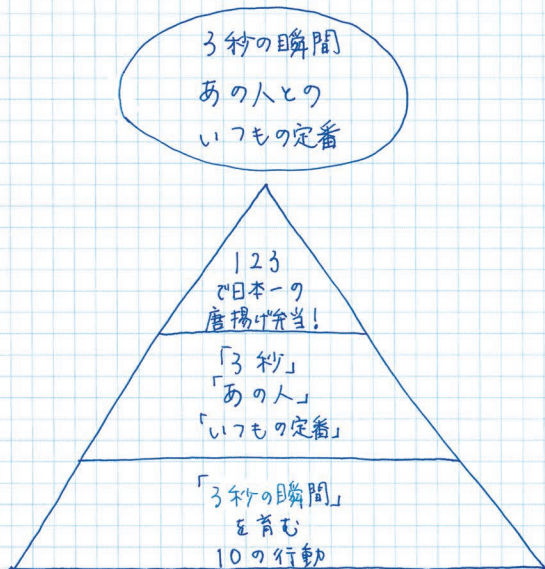 3秒の瞬間
あの人との
いつもの定番
123
で日本一の
唐揚げ弁当!
「3秒」
「あの人」
「いつもの定番」
「3秒の瞬間」
を育む
10の行動